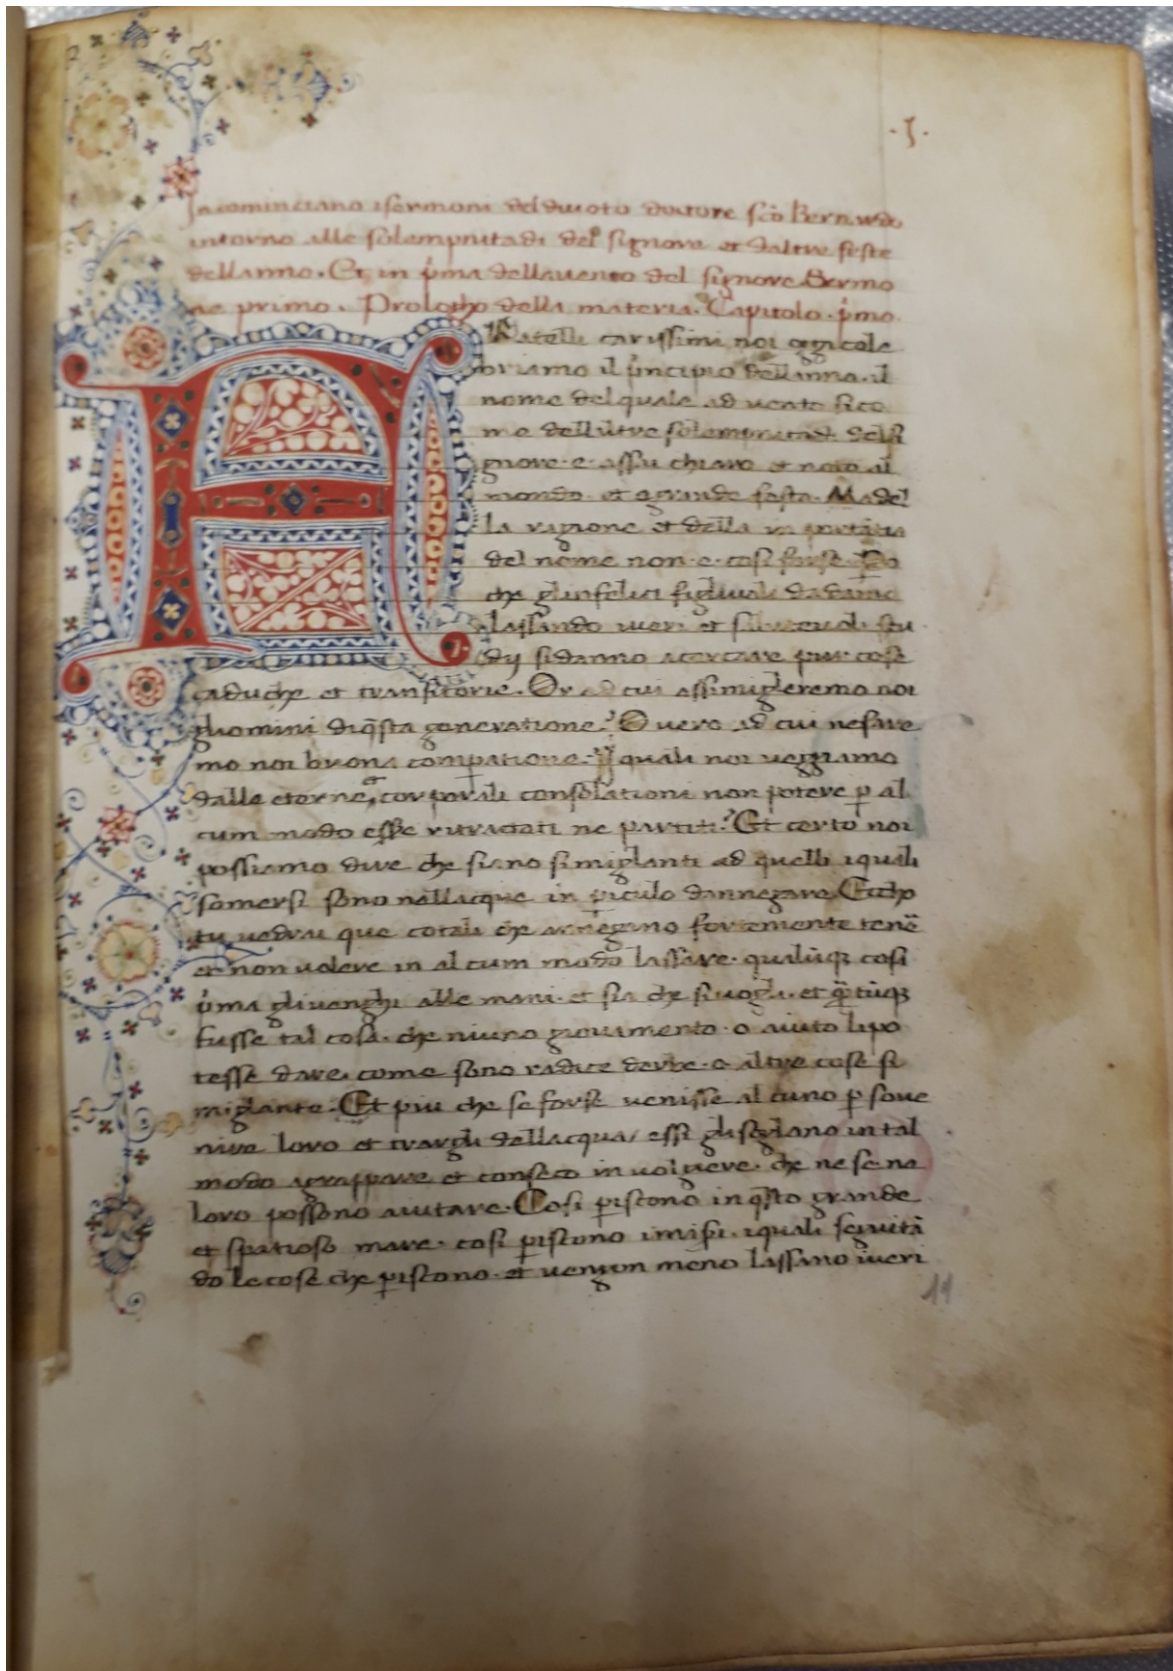 .5.
Incominciano isermoni del diuoto doctore sco Bernardo
intorno alle solempnitadi del signore et daltre feste
dellanno. Et in pma dellauento del signore Sermo
ne primo. Prologho della materia. Capitolo. pmo.
F Ratelli carissimi noi oggi cele
briamo il pncipio dellanno. il
nome del quale aduento sico
me dellaltre solempnitadi del si
gnore. e. assai chiaro et noto al
mondo. et e grande festa. Ma del
la ragione et della
del nome non. e. cosi forse
che glinfelici figliuoli dadamo
lassando iueri et stu
dij sidanno acercare pur cose
caduche et transitorie. Or ad cui assimigleremo noi
gluomini diqsta generatione? Ouero ad cui nefare
mo noi buona compatione. Ii quali noi ueggiamo
dalle eterne a corporali consolationi non potere p al
cum modo essere ritractati ne partiti? Et certo noi
possiamo dire che siano simiglanti ad quelli iquali
somersi sono nellacque in piculo dannegare Eccho
tu uedrai que cotali che annegano fortemente tene
et non uolere in alcum modo lassare. qualuq cosa
pma gliuenghi alle mani. et sia che siuogla. et qtuq
fusse tal cosa. che niuno giouamento. o aiuto lipo
tesse dare. come sono radice derbe. o altre cose si
miglante. Et piu che se forse uenisse alcuno p soue
nire loro et trargli dellacqua/ essi gli soglano in tal
modo agrappare et conseco inuolgere. che ne se ne
loro possono aiutare. Cosi piscono in qsto grande
et spatioso mare. cosi piscono imisi. iquali seguita
do le cose che piscono. et uengon meno lassano iueri
11